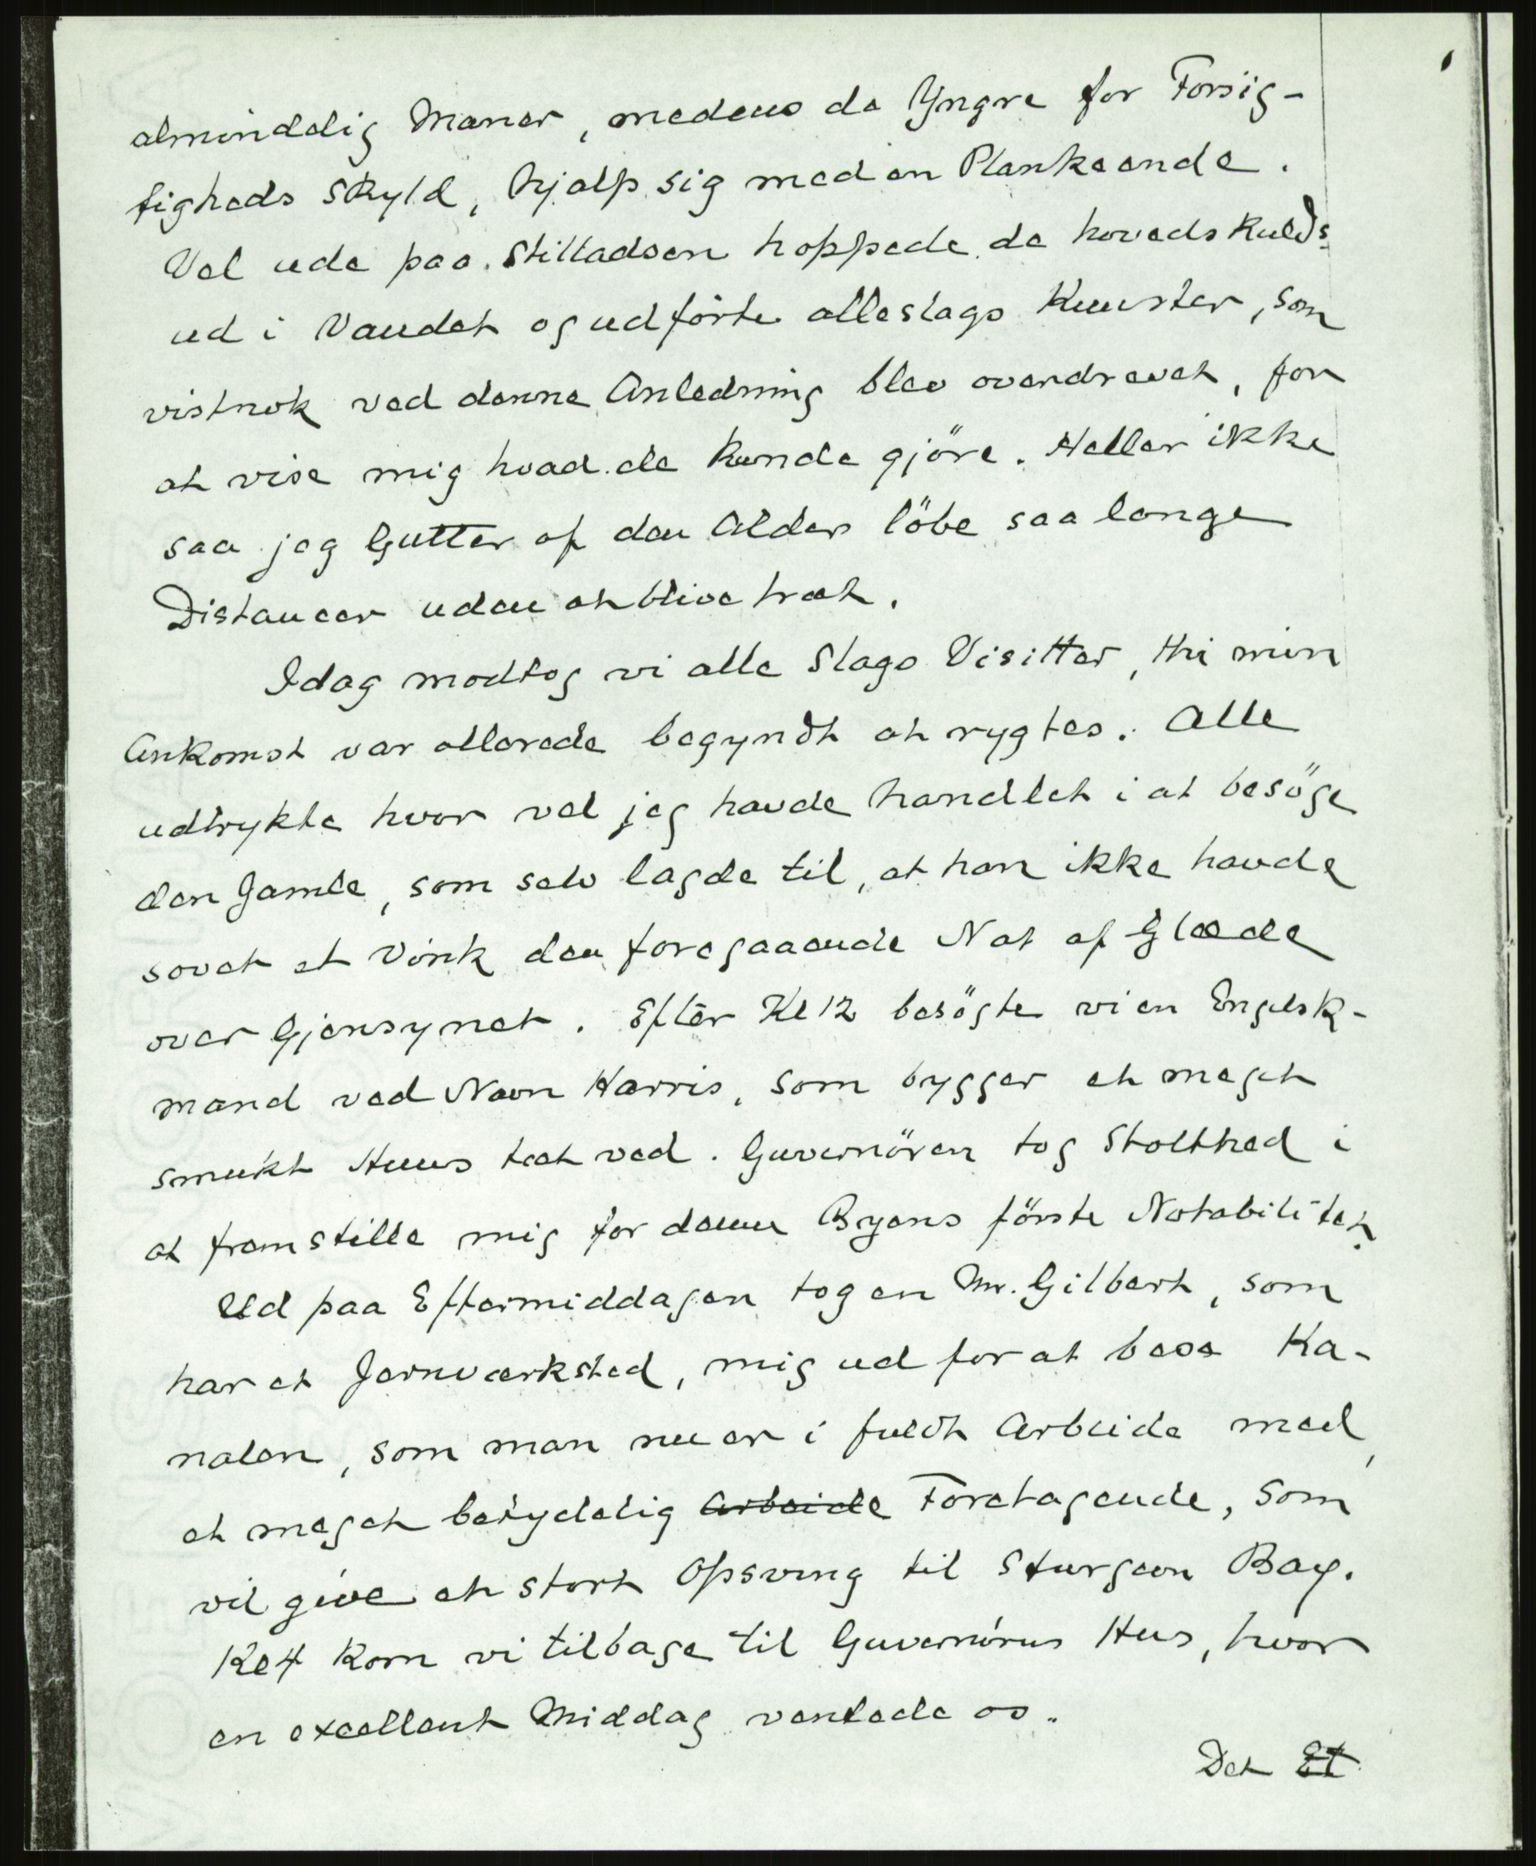 almindelig Maner, medens de Yngre for Forsig-
tigheds Skyld, hjalp sig med en Plankeende.
Vel ude paa Stilladsen hoppede de hovedskulds
ud i Vandet og udførte alleslags Kunster, som
vistnok ved denne Anledning blev overdrevet, for
at vise mig hvad de kunde gjöre. Heller ikke
saa jeg Gutter af den Alder löbe saa lange
Distancer uden at blive træt.
Idag modtog vi alle Slags Visitter, thi min
Ankomst var allerede begyndt at rygtes. Alle
udtrykte hvor vel jeg havde handlet i at besöge
den Gamle, som selv lagde til, at han ikke havde
sovet et Vink den foregaaende Nat af Glæde
over Gjensynet. Efter Kl 12 besögte vi en Engelsk-
mand ved Navn Harris, som bygger et meget
smukt Huus tæt ved. Guvernören tog Stolthed i
at fremstille mig for denne Byens förste Notabilitet.
Ud paa Eftermiddagen tog en Mr. Gilbert, som
har et Jernværksted, mig ud for at bese Ka-
nalen, som man nu er i fuldt Arbeide med,
et meget betydelig Arbeide Foretagende, som
vil give et stort Opsving til Sturgeon Bay.
Kl 4 kom vi tilbage til Guvernörens Hus, hvor
en excellent Middag ventede os.
Det Et